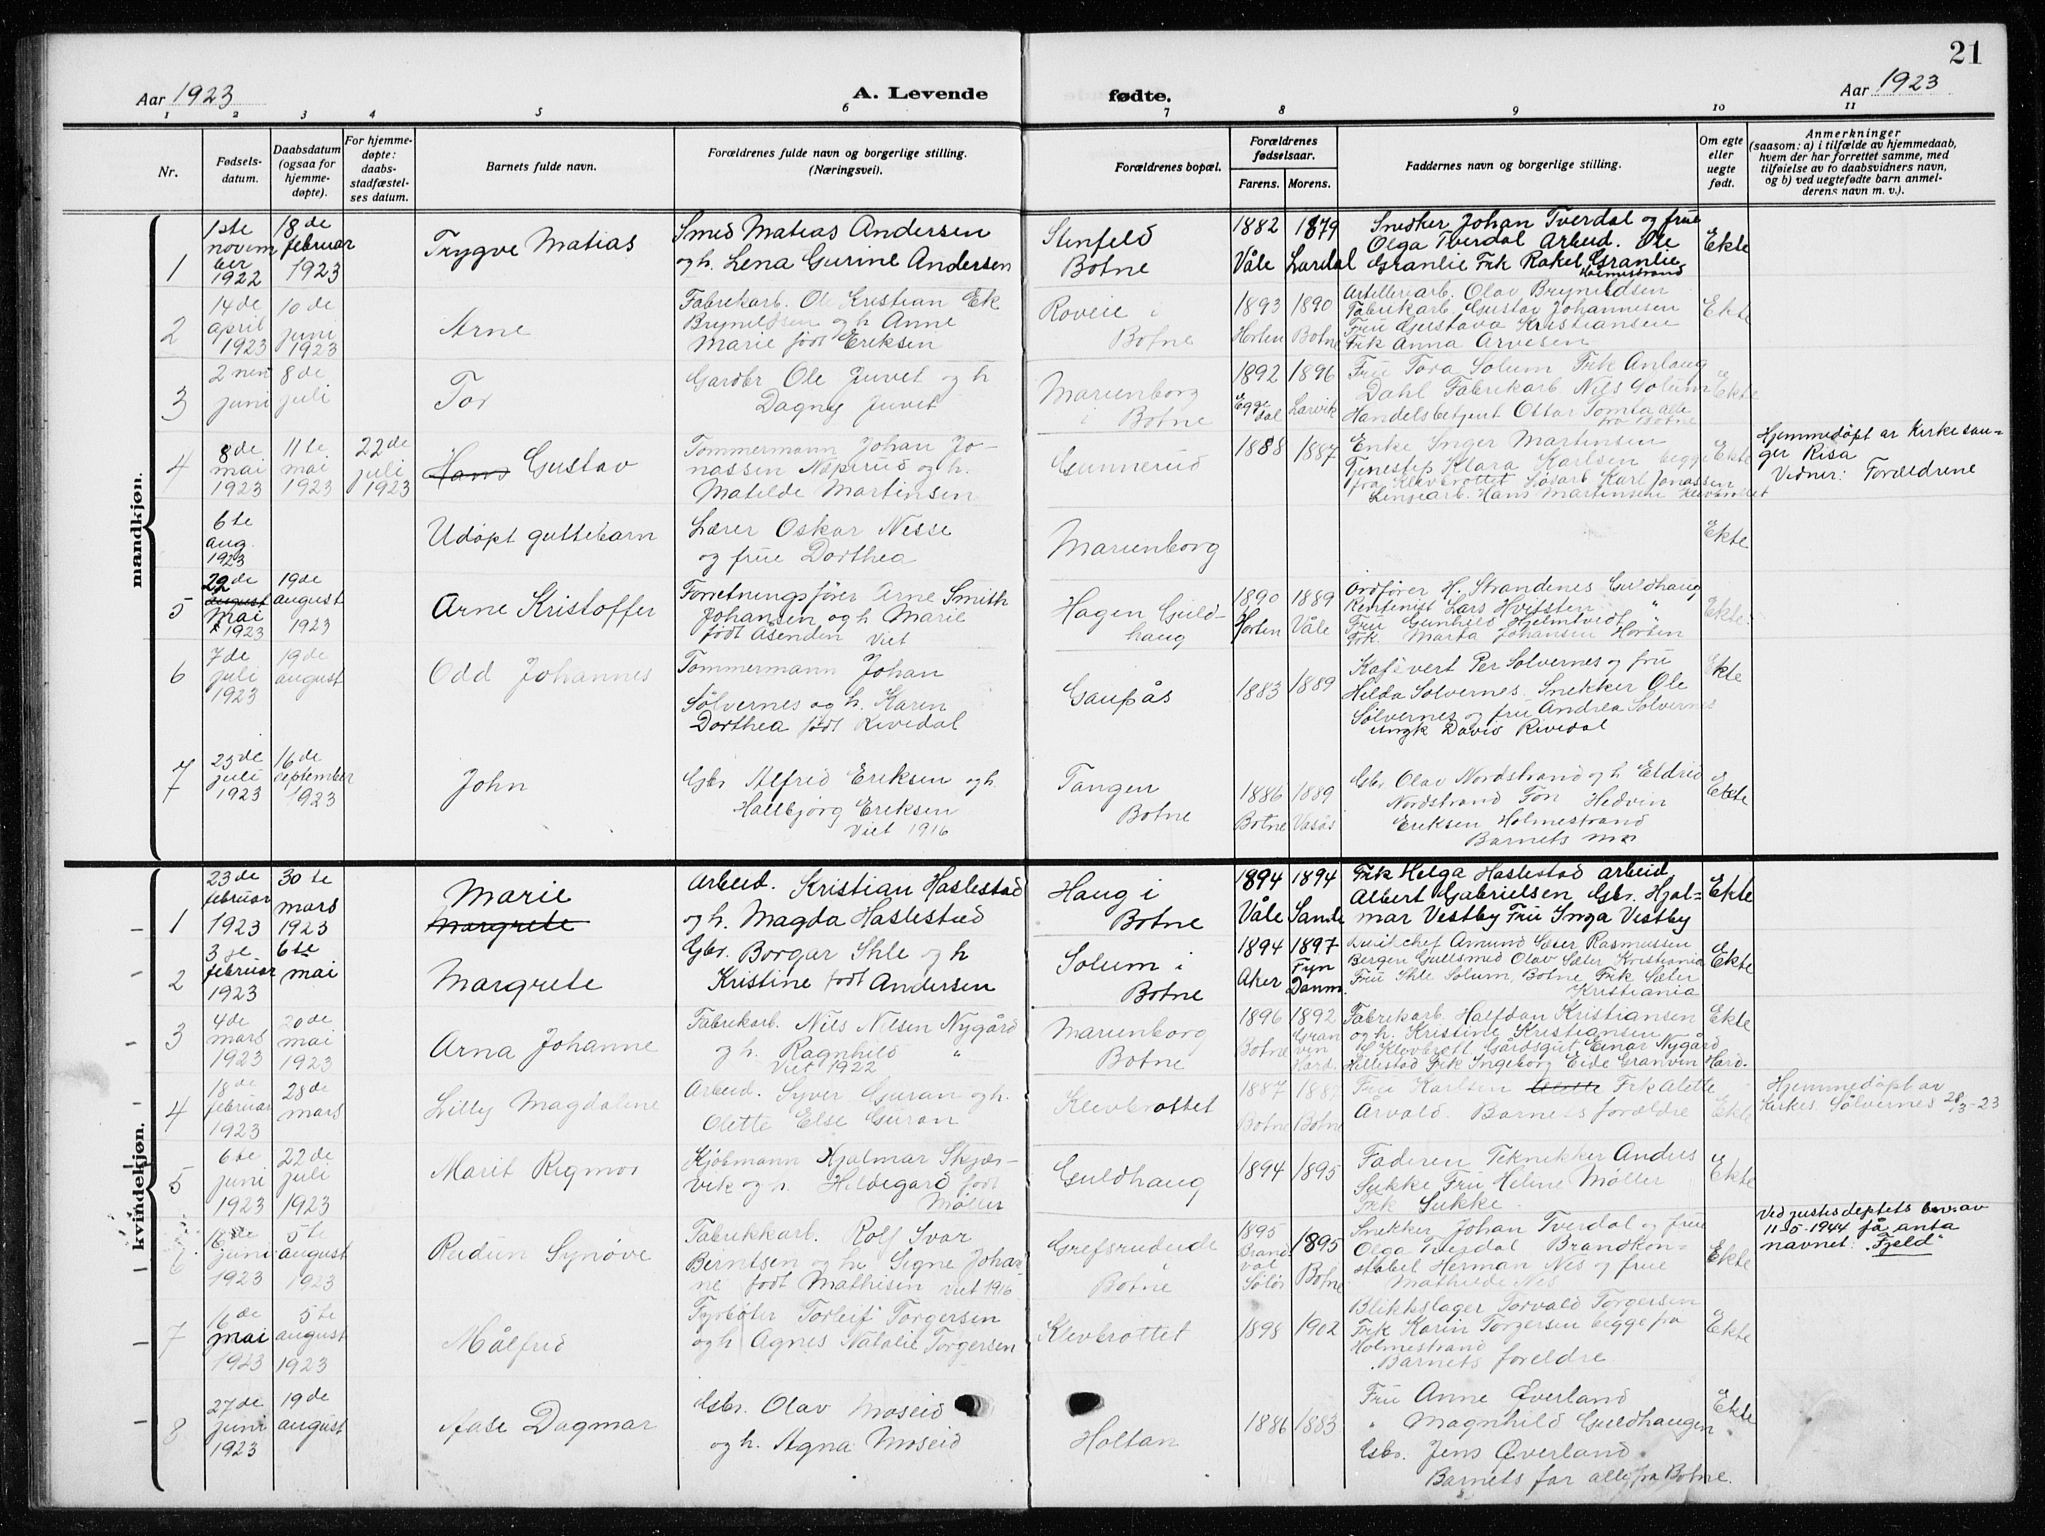 21
Aar 1923
A. Levende
fødte.
Aar 1923
1 2 3 4 5 6 7 8 9 10 11
Nr.
Fødsels-
datum.
Daabsdatum
(ogsaa for
hjemme-
døpte).
For hjemme-
døpte:
daabs-
stadfæstel-
ses datum.
Barnets fulde navn.
Forældrenes fulde navn og borgerlige stilling.
(Næringsvei).
Forældrenes bopæl.
Forældrenes
fødselsaar.
Farens. Morens.
Faddernes navn og borgerlige stilling.
Om egte
eller
uegte
født.
Anmerkninger
(saasom: a) i tilfælde av hjemmedaab,
hvem der har forrettet samme, med
tilføielse av to daabsvidners navn,
og b) ved uegtefødte barn anmel-
derens navn m. v.).
mandkjøn.
1
1ste
novem
ber
1922
18de
februar
1923
Trygve Matias
Smed Matias Andersen
og h. Lena Gurine Andersen
Stenfeld
Botne
1882
Våle
1879
Lardal
Snedker Johan Tverdal og frue
Olga Tverdal Arbeid. Ole
Granlie Frk Rakel Granlie
Holmestrand
Ekte
2
14de
april
1923
10de
juni
1923
Arne
Fabrikarb. Ole Kristian Ek
Brynildsen og h. Anne
Marie født Eriksen
Roveie i
Botne
1893
Horten
1890
Botne
Artilleriarb. Olav Brynildsen
Fabrikarb. Gustav Johannesen
Fru Gustava Kristiansen
Frk Anna Arvesen
Ekte
3
2nen
juni
8de
juli
Tor
Gardbr Ole Juvet og h
Dagny Juvet
Marienborg
i Botne
1892
Egge
dal
1896
Larvik
Fru Tora Solum Frk Anlaug
Dahl Fabrikarb Nils Solum
Handelsbetjent Ottar Tomta alle
fra Botne
Ekte
4
8de
mai
1923
11te
mai
1923
22de
juli
1923
Hans Gustav
Tømmermann Johan Jo-
nassen Næperud og h.
Matilde Martinsen
Gunnerud
1888
1887
Enke Inger Martinsen
Tjenestep Klara Karlsen begge
fra Klevbrottet Løsarb Karl Jonassen
Linjearb. Hans Martinsen Klevbrottet
Ekte
Hjemmedøpt av Kirkesan-
ger Risa
Vidner: Forældrene
6te
aug.
1923
Udøpt guttebarn
Lærer Oskar Nesse
og frue Dorthea
Marienborg
Ekte
5
22de
august
Mai
1923
19de
august
1923
Arne Kristoffer
Forretningsfører Arne Smith
Johansen og h Marie
født Åsenden viet
Hagen Guld-
haug
1890
Horten
1889
Våle
Ordfører H. Strandenes Guldhaug
Rentenist Lars Hvitsten "
Fru Gunhild Hjelmtvedt "
Frk. Marta Johansen Horten
Ekte
6
7de
juli
1923
19de
august
Odd Johannes
Tømmermann Johan
Sølvernes og h. Karen
Dorthea født Rivedal
Gaupås
1883
1889
Kafévert Per Sølvernes og fru
Hilda Sølvernes. Snekker Ole
Sølvernes og fru Andrea Sølvernes
Ungk David Rivedal
Ekte
7
25de
juli
1923
16de
september
1923
John
Gbr Alfred Eriksen og h.
Hallbjørg Eriksen
Viet 1916
Tangen
Botne
1886
Botne
1889
Vasås
Gbr. Olav Nordstrand og h Eldrid
Nordstrand Frk Hedvin
Eriksen Holmestrand
Barnets mor
Ekte
kvindekjøn.
1
23de
februar
1923
30te
mars
1923
Marie
Margrete
Arbeid. Kristian Haslestad
og h. Magda Haslestad
Haug i
Botne
1894
Våle
1894
Sande
Frk Helga Haslestad arbeid
Albert Gabrielsen Gbr. Hjal-
mar Vestby Fru Inga Vestby
Ekte
2
3je
februar
1923
6te
mai
Margrete
Gbr. Borgar Ihle og h
Kristine født Andersen
Solum i
Botne
1894
Aker
1897
Fyn
Danm.
Driftchef Amund Sæter Rasmussen
Bergen Gullsmed Olav Sæter Kristiania
Fru Ihle Solum, Botne Frk Sæter
Kristiania
Ekte
3
4de
mars
1923
20de
mai
1923
Arna Johanne
Fabrikarb. Nils Nilsen Nygård
og h. Ragnhild "
Viet 1922
Marienborg
Botne
1896
Botne
1892
Gran
vin
Hard.
Fabrikarb. Halfdan Kristiansen
og h. Kristine Kristiansen
Klevbrott Gårdsgut Einar Nygård
Hillestad Frk Ingeborg Eide Granvin Hard-
Ekte
4
18de
februar
1923
28de
mars
Lilly Magdalene
Arbeid. Syver Guran og h.
Olette Else Guran
Klevbrottet
1887
Botne
1887
Botne
Fru Karlsen Frk Alette
Årvald. Barnets forældre
Ekte
Hjemmedøpt av
Kirkes. Sølvernes 28/3-23
5
6te
juni
1923
22de
juli
1923
Marit Rigmor
Kjøbmann Hjalmar Skjær-
vik og h. Hildegard født
Møller
Guldhaug
1894
1895
Faderen Teknikker Anders
Sukke Fru Heline Møller
Frk Sukke
Ekte
6
16de
juni
1923
5te
august
1923
Reidun Synøve
Fabrikkarb. Rolf Ivar
Berntsen og h. Signe Johan
ne født Mathisen viet 1916
Grefsrudeide
i
Botne
1895
Brand
val
Solør
1895
Botne
Snekker Johan Tverdal og frue
Olga Tverdal Brandkon-
stabel Herman Nes og frue
Mathilde Nes
Ekte
Ved justisdeptets bev. av
11-5-1944 få anta
navnet: "Fjeld"
7
16de
mai
1923
5te
august
1923
Målfrid
Fyrbøter Torleif Torgersen
og h Agnes Natalie Torgersen
Klevbrottet
1898
1902
Blikkslager Torvald Torgersen
Frk Karin Torgersen begge fra
Holmestrand
Barnets foreldre
Ekte
8
27de
juni
1923
19de
august
Aase Dagmar
Gbr. Olav Moseid
og h. Agna Moseid
Holtan
1886
1883
Fru Anne Øverland
" Magnhild Guldhaugen
Gbr. Jens Øverland
Barnets far alle fra Botne.
Ekte